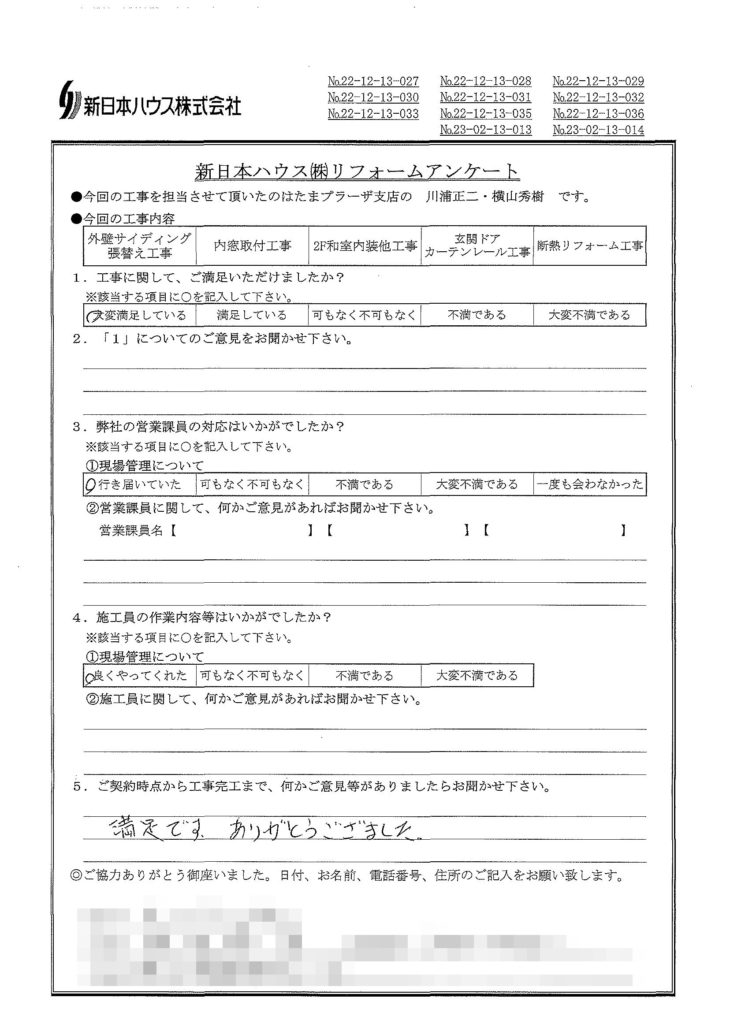 新日本ハウス株式会社
№22-12-13-027 №22-12-13-028 №22-12-13-029
№22-12-13-030 №22-12-13-031 №22-12-13-032
№22-12-13-033 №22-12-13-035 №22-12-13-036
№23-02-13-013 №23-02-13-014
新日本ハウス㈱リフォームアンケート
●今回の工事を担当させて頂いたのはたまプラーザ支店の 川浦正二・横山秀樹 です。
●今回の工事内容
外壁サイディング張替え工事 内窓取付工事 2F和室内装他工事 玄関ドアカーテンレール工事 断熱リフォーム工事
1．工事に関して、ご満足いただけましたか？
※該当する項目に○を記入して下さい。
大変満足している 満足している 可もなく不可もなく 不満である 大変不満である
2．「1」についてのご意見をお聞かせ下さい。
3．弊社の営業課員の対応はいかがでしたか？
※該当する項目に○を記入して下さい。
①現場管理について
行き届いていた 可もなく不可もなく 不満である 大変不満である 一度も会わなかった
②営業課員に関して、何かご意見があればお聞かせ下さい。
営業課員名【 】【 】【 】
4．施工員の作業内容等はいかがでしたか？
※該当する項目に○を記入して下さい。
①現場管理について
良くやってくれた 可もなく不可もなく 不満である 大変不満である
②施工員に関して、何かご意見があればお聞かせ下さい。
5．ご契約時点から工事完工まで、何かご意見等がありましたらお聞かせ下さい。
満足です。ありがとうございました。
◎ご協力ありがとう御座いました。日付、お名前、電話番号、住所のご記入をお願い致します。